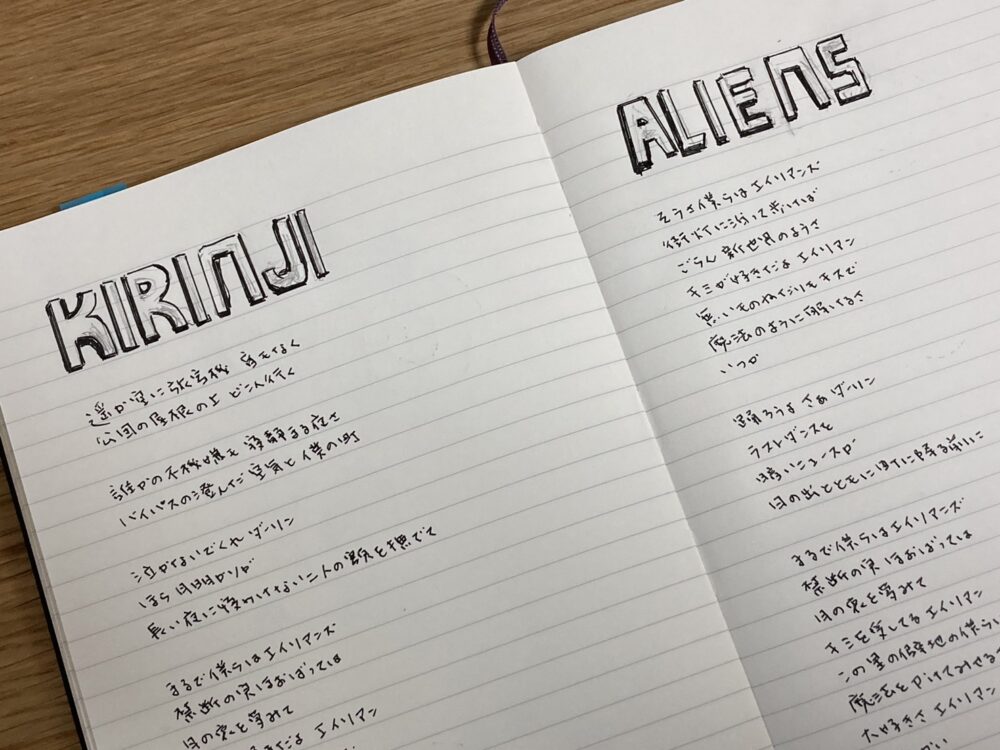 KIRINJI
遥か空に旅客機 音もなく
公団の屋根の上 どこへ行く
誰かの不機嫌も 寝静まる夜さ
バイパスの澄んだ空気と 僕の町
泣かないでくれ ダーリン
ほら 月明かりが
長い夜に寝つけない二人の額を撫でて
まるで僕らはエイリアンズ
禁断の実 ほおばっては
月の裏を夢みて
だよ エイリアン
ALIENS
そうさ僕らはエイリアンズ
街灯に沿って歩けば
ごらん 新世界のようさ
キミが好きだよ エイリアン
無いものねだりもキスで
魔法のように解けるさ
いつか
踊ろうよ さぁ ダーリン
ラストダンスを
暗いニュースが
日の出とともに町に降る前に
まるで僕らはエイリアンズ
禁断の実 ほおばっては
月の裏を夢みて
キミを愛してる エイリアン
この星の僻地の僕らに
魔法をかけてみせるさ
大好きさ エイリアン